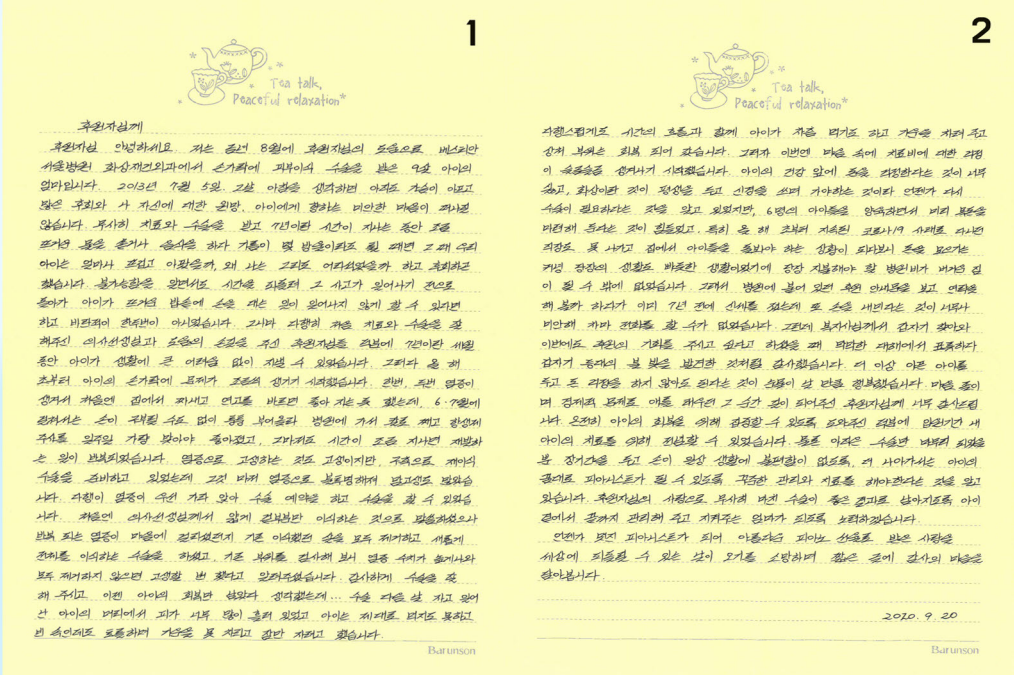 1
Tea talk,
Peaceful relaxation*
후원자님께
후원자님 안녕하세요. 저는 올년 8월에 후원자님의 도움으로 베스티안
서울병원 화상재건외과에서 손가락에 피부이식 수술을 받은 9살 아이의
엄마입니다. 2013년 7월 5일 그날 아침을 생각하면 아직도 가슴이 아프고
많은 후회와 나 자신에 대한 원망, 아이에게 향하는 미안한 마음이 떠나질
않습니다. 무사히 치료와 수술을 받고 7년이란 시간이 지나는 동안 조금
뜨거운 물을 쏟거나 음식을 하다 기름이 몇 방울이라도 튈 때면 그 때 우리
아이는 얼마나 뜨겁고 아팠을까, 왜 나는 그리도 어리석었을까 하고 후회하곤
했습니다. 불가능함을 알면서도 시간을 되돌려 그 사고가 일어나기 전으로
돌아가 아이가 뜨거운 밥솥에 손을 대는 일이 일어나지 않게 할 수 있다면
하고 바란적이 한두번이 아니었습니다. 그나마 다행히 처음 치료와 수술을 잘
해주신 의사선생님과 도움의 손길을 주신 후원자님들 덕분에 7년이란 세월
동안 아이가 생활에 큰 어려움 없이 지낼 수 있었습니다. 그러다 올 해
초부터 아이의 손가락에 문제가 조금씩 생기기 시작했습니다. 한번, 두번 염증이
생겨서 처음엔 집에서 짜내고 연고를 바르면 좋아 지는듯 했는데, 6·7월에
걸쳐서는 손이 구부릴 수도 없이 퉁퉁 부어올라 병원에 가서 칼로 째고 항생제
주사를 일주일 가량 맞아야 좋아졌고, 그마저도 시간이 조금 지나면 재발하
는 일이 반복되었습니다. 염증으로 고생하는 것도 고생이지만, 구축으로 재이식
수술을 준비하고 있었는데 그것 마저 염증으로 불투명해져 막막하고도 했었습
니다. 다행히 염증이 우선 가라 앉아 수술 예약을 하고 수술을 할 수 있었습
니다. 처음엔 의사선생님께서 얇게 겉부분만 이식하는 것으로 말씀하셨으나
반복 되는 염증이 마음에 걸리셨던지 기존 이식했던 살을 모두 제거하고 새롭게
전체를 이식하는 수술을 하셨고, 기존 부위를 검사해 보니 염증 수치가 높게나와
모두 제거하지 않으면 고생할 뻔 했다고 알려주셨습니다. 감사하게 수술을 잘
해 주시고 이젠 아이의 회복만 남았다 생각했는데... 수술 다음 날 자고 일어
난 아이의 머리에서 피가 너무 많이 흘러 있었고 아이는 제대로 먹지도 못하고
빈 속인데도 토를하며 기운을 못 차리고 잠만 자려고 했습니다.
Barunson
2
Tea talk,
Peaceful relaxation*
다행스럽게도 시간의 흐름과 함께 아이가 차츰 먹기도 하고 기운을 차려 주고
상처 부위는 회복 되어 갔습니다. 그러자 이번엔 마음 속에 치료비에 대한 걱정
이 슬금슬금 생겨나기 시작했습니다. 아이의 건강 앞에 돈을 걱정한다는 것이 너무
싫고, 화상이란 것이 평생을 두고 신경을 쓰며 가야하는 것이라 언젠가 다시
수술이 필요하다는 것을 알고 있었지만, 6명의 아이들을 양육하면서 미리 목돈을
마련해 둔다는 것이 힘들었고, 특히 올 해 초부터 지속된 코로나19 사태로 다니던
직장도 못 나가고 집에서 아이들을 돌봐야 하는 상황이 되다보니 돈을 모으기는
커녕 당장의 생활도 빠듯한 생활이었기에 당장 지불해야 할 병원비가 버거운 짐
이 될 수 밖에 없었습니다. 그래서 병원에 붙어 있던 후원 안내문을 보고 연락을
해 볼까 하다가 이미 7년 전에 신세를 졌는데 또 손을 내민다는 것이 너무나
미안해 차마 전화를 할 수가 없었습니다. 그런데 복지사님께서 갑자기 찾아와
이번에도 후원의 기회를 주시고 싶다고 하셨을 때 막막한 대해에서 표류하다
갑자기 등대의 불 빛을 발견한 것처럼 감사했습니다. 더 이상 아픈 아이를
두고 돈 걱정을 하지 않아도 된다는 것이 눈물이 날 만큼 행복했습니다. 마음 졸이
며 경제적 문제로 애를 태우던 그 순간 빛이 되어주신 후원자님께 너무 감사드립
니다. 온전히 아이의 회복을 위해 집중할 수 있도록 도와주신 덕분에 입원기간 내
아이의 치료를 위해 전념할 수 있었습니다. 물론 아직은 수술만 마무리 되었을
뿐 장기간을 두고 손이 일상 생활에 불편함이 없도록, 더 나아가서는 아이의
꿈대로 피아니스트가 될 수 있도록 꾸준한 관리와 치료를 해야한다는 것을 알고
있습니다. 후원자님의 사랑으로 무사히 마친 수술이 좋은 결과로 남아지도록 아이
곁에서 끝까지 관리해 주고 지켜주는 엄마가 되도록 노력하겠습니다.
언젠가 멋진 피아니스트가 되어 아름다운 피아노 선율로 받은 사랑을
세상에 되돌릴 수 있는 날이 오기를 소망하며 짧은 글에 감사의 마음을
담아봅니다.
2020. 9. 20
Barunson